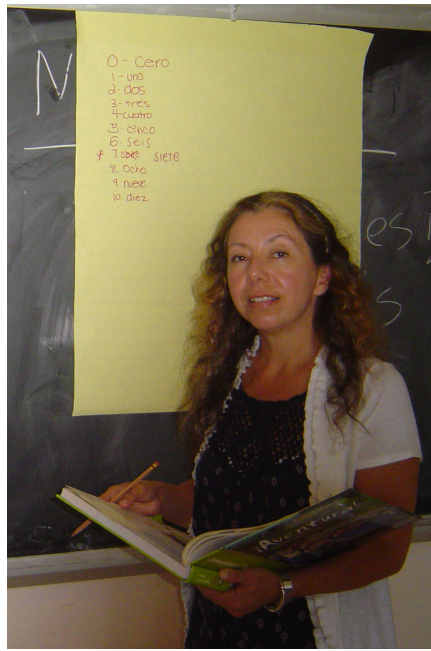 N
0 - cero
1 - uno
2. dos
3 - tres
4-cuatro
5. cinco
6. seis
7. siete
8. ocho
9. nueve
10. diez
es
s
¡Aventura!